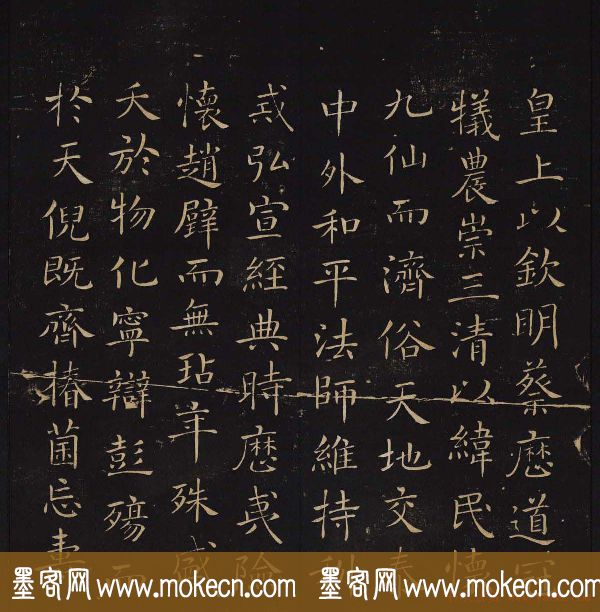 皇上以欽明蔡歷道冠
犧農崇三清以緯民懷
九仙而濟俗天地交泰
中外和平法師維持科
戒弘宣經典時歷夷險
懷趙璧而無玷年殊盛
夭於物化寧辯彭殤而
於天倪既齊椿菌忘壽
墨客网 www.mokecn.com 墨客网 www.mokecn.com